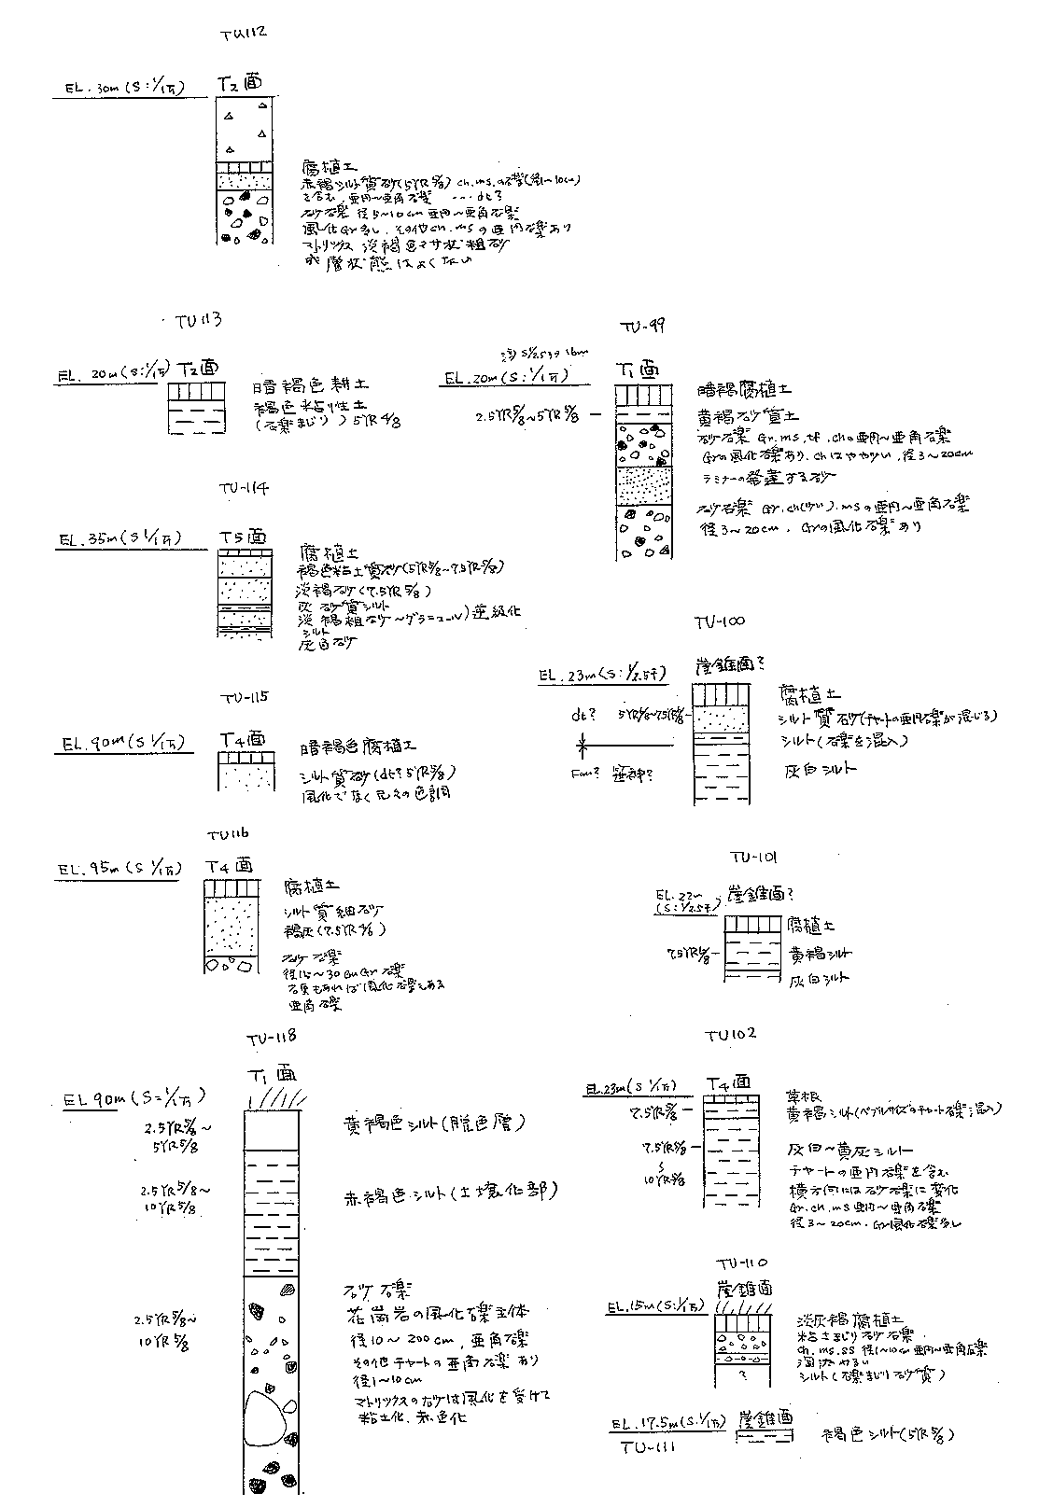 TU112
EL. 30m (S:1/1万) T2面
腐植土
赤褐シルト質砂(5YR 5/8) ch.ms.の礫(径〜10cm)
を含む, 亜円〜亜角礫 ---- dt?
砂礫 径5〜10cm 亜円〜亜角礫
風化Gr多し, その他ch.msの亜円礫あり
マトリックス 淡褐色マサ状粗砂
成層状態はよくない
TU113
EL. 20m (S:1/1万) T2面
暗褐色耕土
褐色粘性土
(礫まじり) 5YR 4/8
TU-114
EL. 35m (S 1/1万) T5面
腐植土
褐色粘土質砂(5YR 5/8〜7.5YR 5/8)
淡褐砂(7.5YR 5/8)
灰砂質シルト
淡褐粗砂〜グラニュール)逆級化
シルト
灰色砂
TU-115
EL. 90m (S 1/1万) T4面
暗褐色腐植土
シルト質砂(dt? 5YR 5/8)
風化でなく元々の色調
TU116
EL. 95m (S 1/1万) T4面
腐植土
シルト質細砂
褐灰(7.5YR
砂礫
径15〜30cm Gr礫
亜角礫
TU-118
T1面
EL 90m (S=1/1万)
2.5YR 5/8〜
5YR 5/8
黄褐色シルト(脱色層)
2.5YR 5/8〜
10YR 5/8
赤褐色シルト(土壌化部)
2.5YR 5/8〜
10YR 5/8
砂礫
花崗岩の風化礫主体
径10〜200cm, 亜角礫
その他チャートの亜角礫あり
径1〜10cm
マトリックスの砂は風化を受けて
粘土化, 赤色化
TU-99
S1/2.5千 16m T1面
EL.20m (S:1/1万)
2.5YR 5/8〜5YR 5/8
暗褐腐植土
黄褐砂質土
砂礫 Gr.ms.tf.chの亜円〜亜角礫
Grの風化礫あり, chはやや 径3〜20cm
ラミナーの発達する砂
砂礫 Gr.ch .msの亜円〜亜角礫
径3〜20cm. Grの風化礫あり
TU-100
EL.23m (S:1/2.5千) 崖錐面?
dt? 5YR 5/8〜7.5YR 5/8
Fm?
腐植土
シルト質砂(チャートの亜円礫が混じる)
シルト(礫を混入)
灰白シルト
TU-101
EL.22m (S:1/2.5千) 崖錐面?
7.5YR 5/8
腐植土
黄褐シルト
灰白シルト
TU102
EL.23m (S 1/1万) T4面
7.5YR 5/8
7.5YR 5/8
〜
10YR 5/8
草根
黄褐シルト(ペブルサイズのチャート礫混入)
灰白〜黄灰シルト
チャートの亜円礫を含む
横方向には砂礫に変化
Gr.ch.ms 亜円〜亜角礫
径3〜20cm. Gr風化礫多し
TU-110
EL.15m (S:1/1万) 崖錐面
?
淡灰褐腐植土
粘土まじり砂礫
ch.ms.ss 径1〜10cm 亜円〜亜角礫
シルト(礫まじり砂質)
EL.17.5m (S:1/1万) 崖錐面
TU-111
褐色シルト(5YR 5/8)